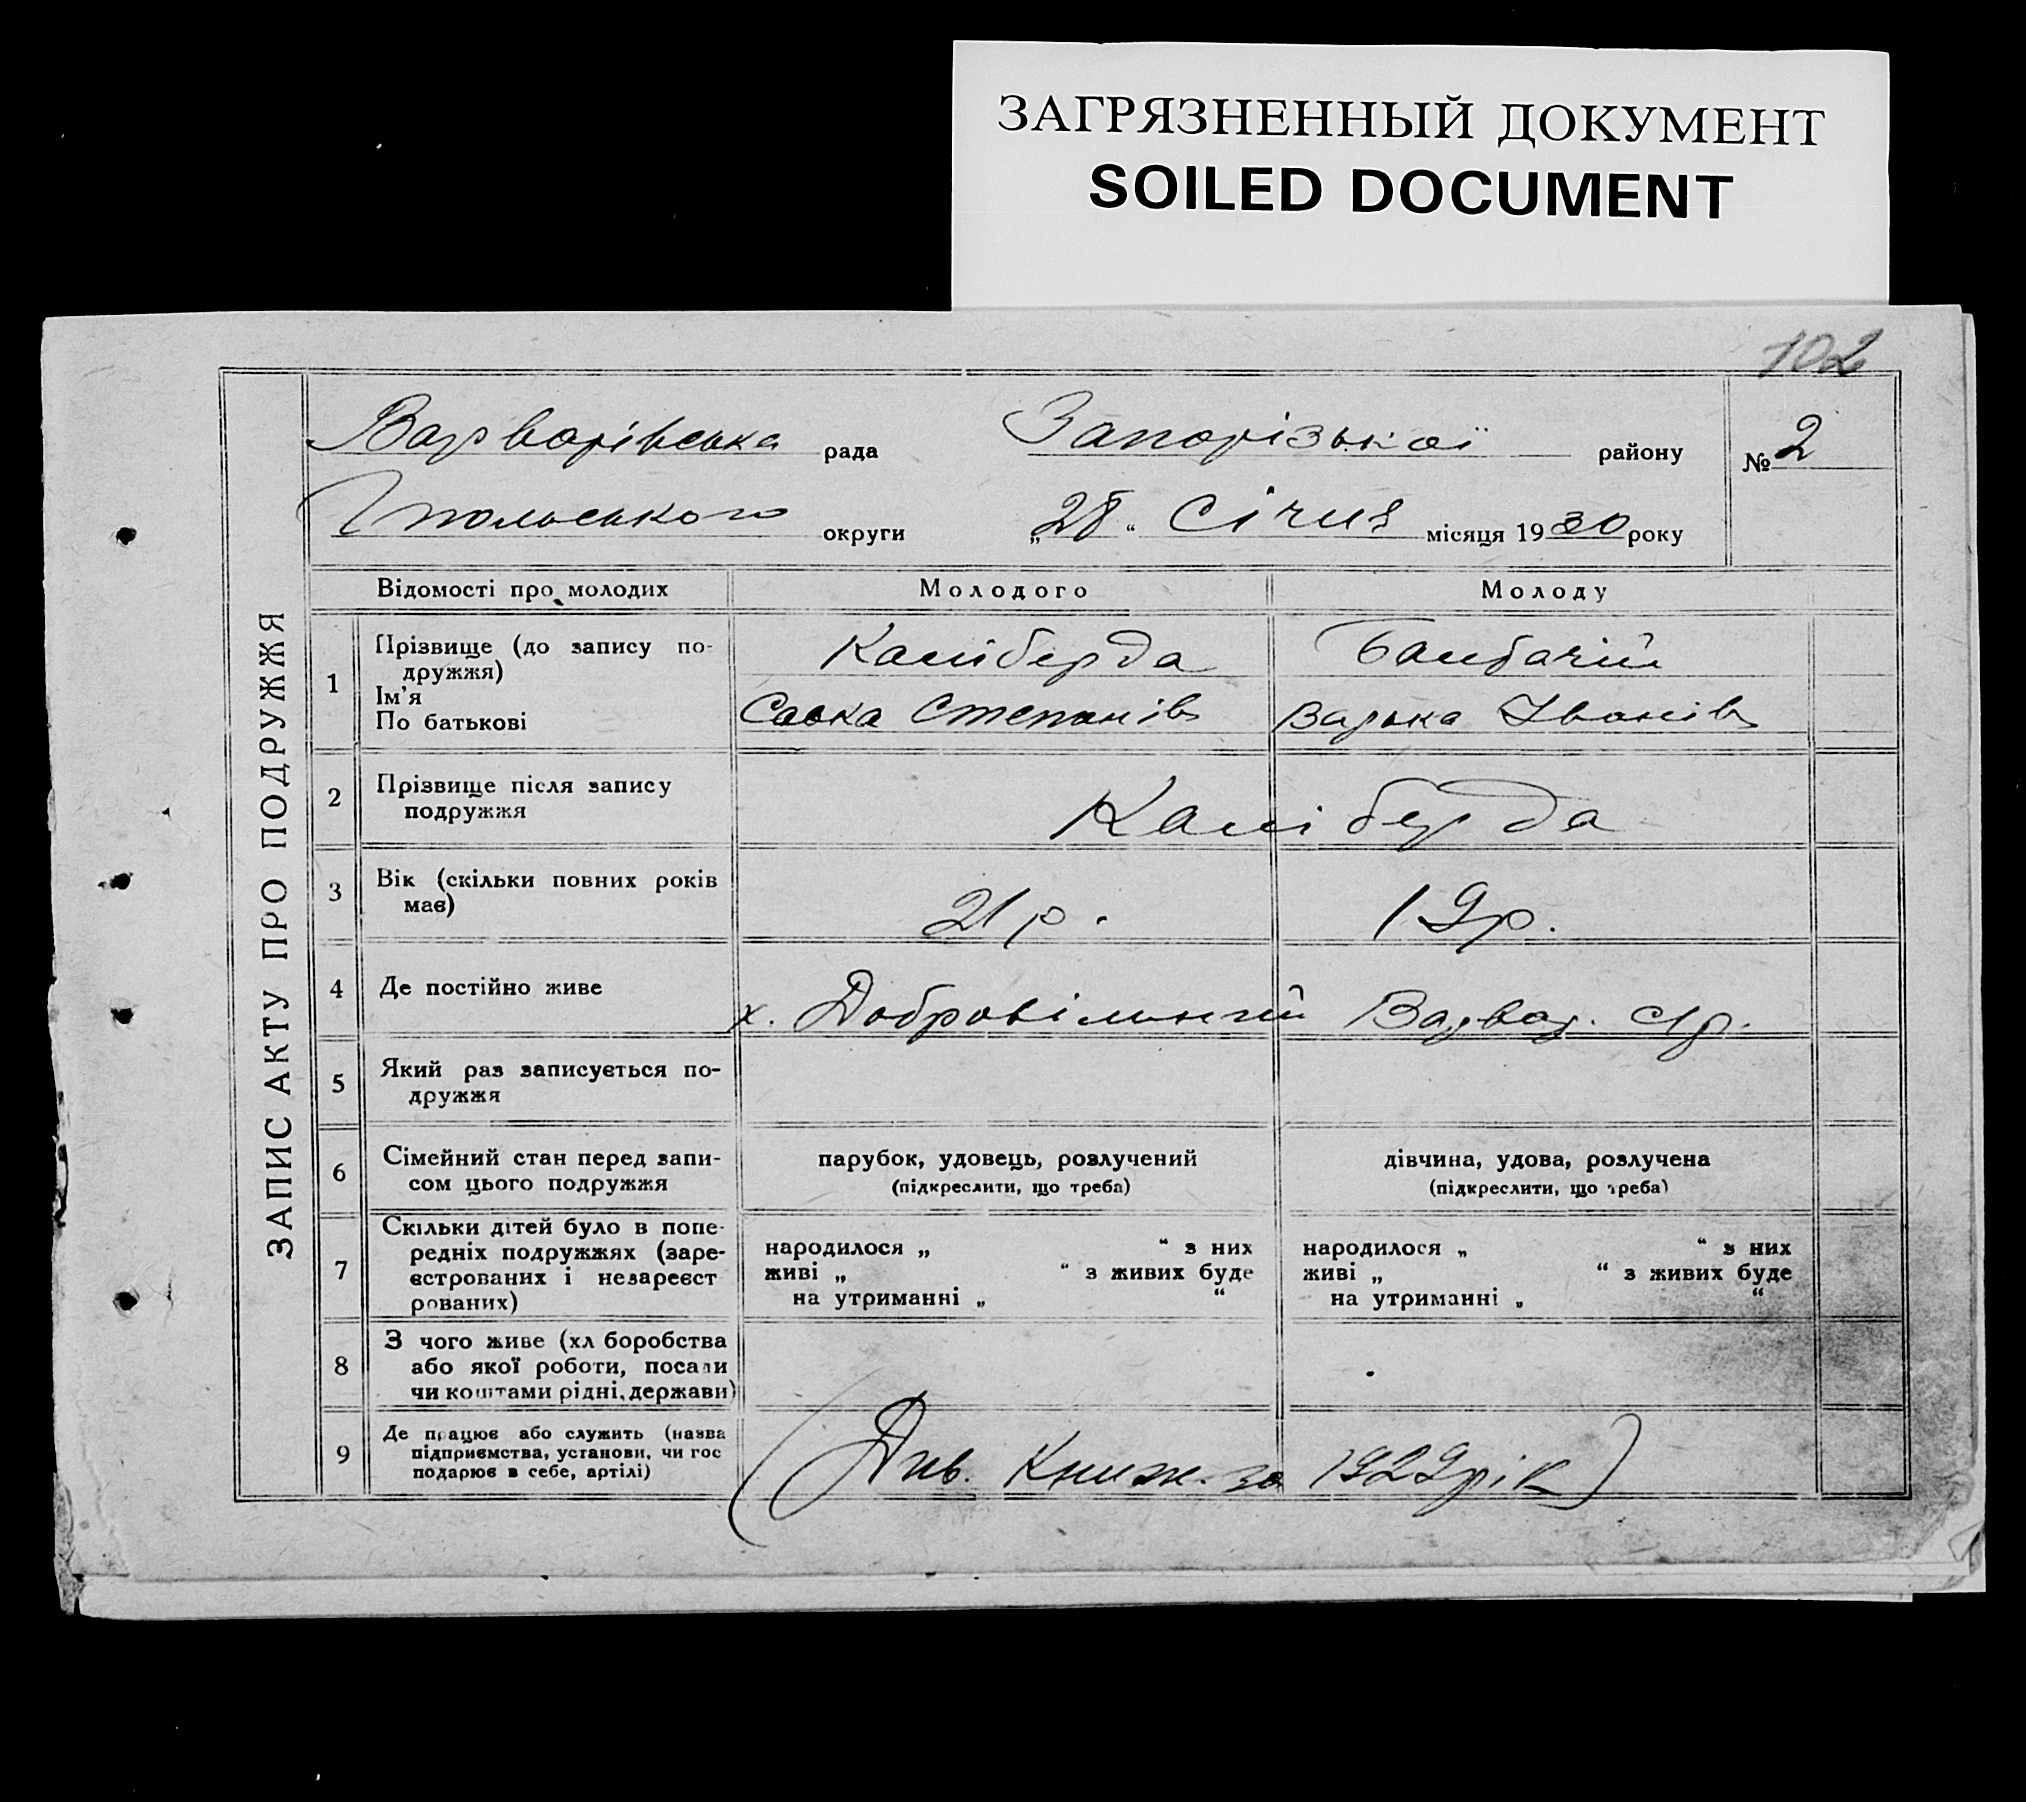 ЗАГРЯЗНЕННЫЙ ДОКУМЕНТ
SOILED DOCUMENT
102
ЗАПИС АКТУ ПРО ПОДРУЖЖЯ
Варварівська рада Запорізької району № 2
округи „28“ Січня місяця 1930 року
Відомості про молодих Молодого Молоду
1 Прізвище (до запису по-
дружжя)
Ім'я
По батькові
Каліберда
Савка Степанів Варька Іванів
2 Прізвище після запису
подружжя
Каліберда
3 Вік (скільки повних років
має)
21 р. 19 р.
4 Де постійно живе х. Добровільний Варвар. с/р.
5 Який раз записується по-
дружжя
6 Сімейний стан перед запи-
сом цього подружжя
парубок, удовець, розлучений
(підкреслити, що треба)
дівчина, удова, розлучена
(підкреслити, що треба)
7 Скільки дітей було в попе-
редніх подружжях (заре-
єстрованих і незареєст
рованих)
народилося „ “ з них
живі „ “ з живих буде
на утриманні „ “
народилося „ “ з них
живі „ “ з живих буде
на утриманні „ “
8 З чого живе (хл боробства
або якої роботи, посади
чи коштами рідні, держави)
9 Де працює або служить (назва
підприємства, установи, чи гос
подарює в себе, артілі)
(Див. Книж. за 1929 рік)